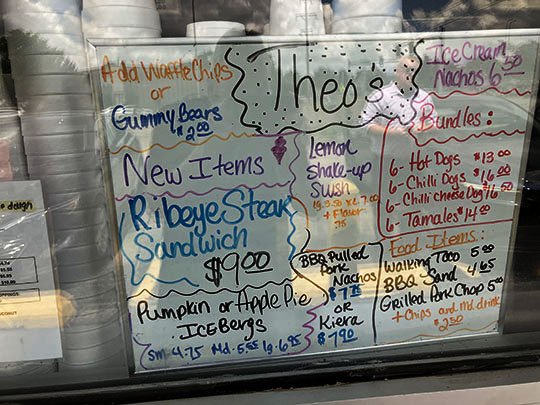 Theo's
Add Waffle Chips
or
Gummy Bears
$2.00
New Items
Ribeye Steak
Sandwich
$9.00
Pumpkin or Apple Pie
ICEBergs
Sm 4.75 Md-5.55 lg-6.95
Lemon
Shake-up
Slush
+ Flavor
.75
BBQ Pulled
Pork
Nachos
or
Kiera
$7.90
Ice Cream
Nachos 6.50
Bundles:
6- Hot Dogs $13.00
6- Chilli Dogs $16.00
6- Chilli cheese Dog $16.50
6- Tamales $14.00
Food Items:
Walking Taco 5.00
BBQ Sand 4.65
Grilled Pork Chop 5.50
+ Chips and Md. drink
$2.50
dough